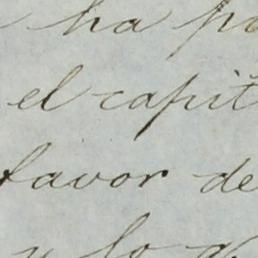 ha po
el capit
favor de
y lo q